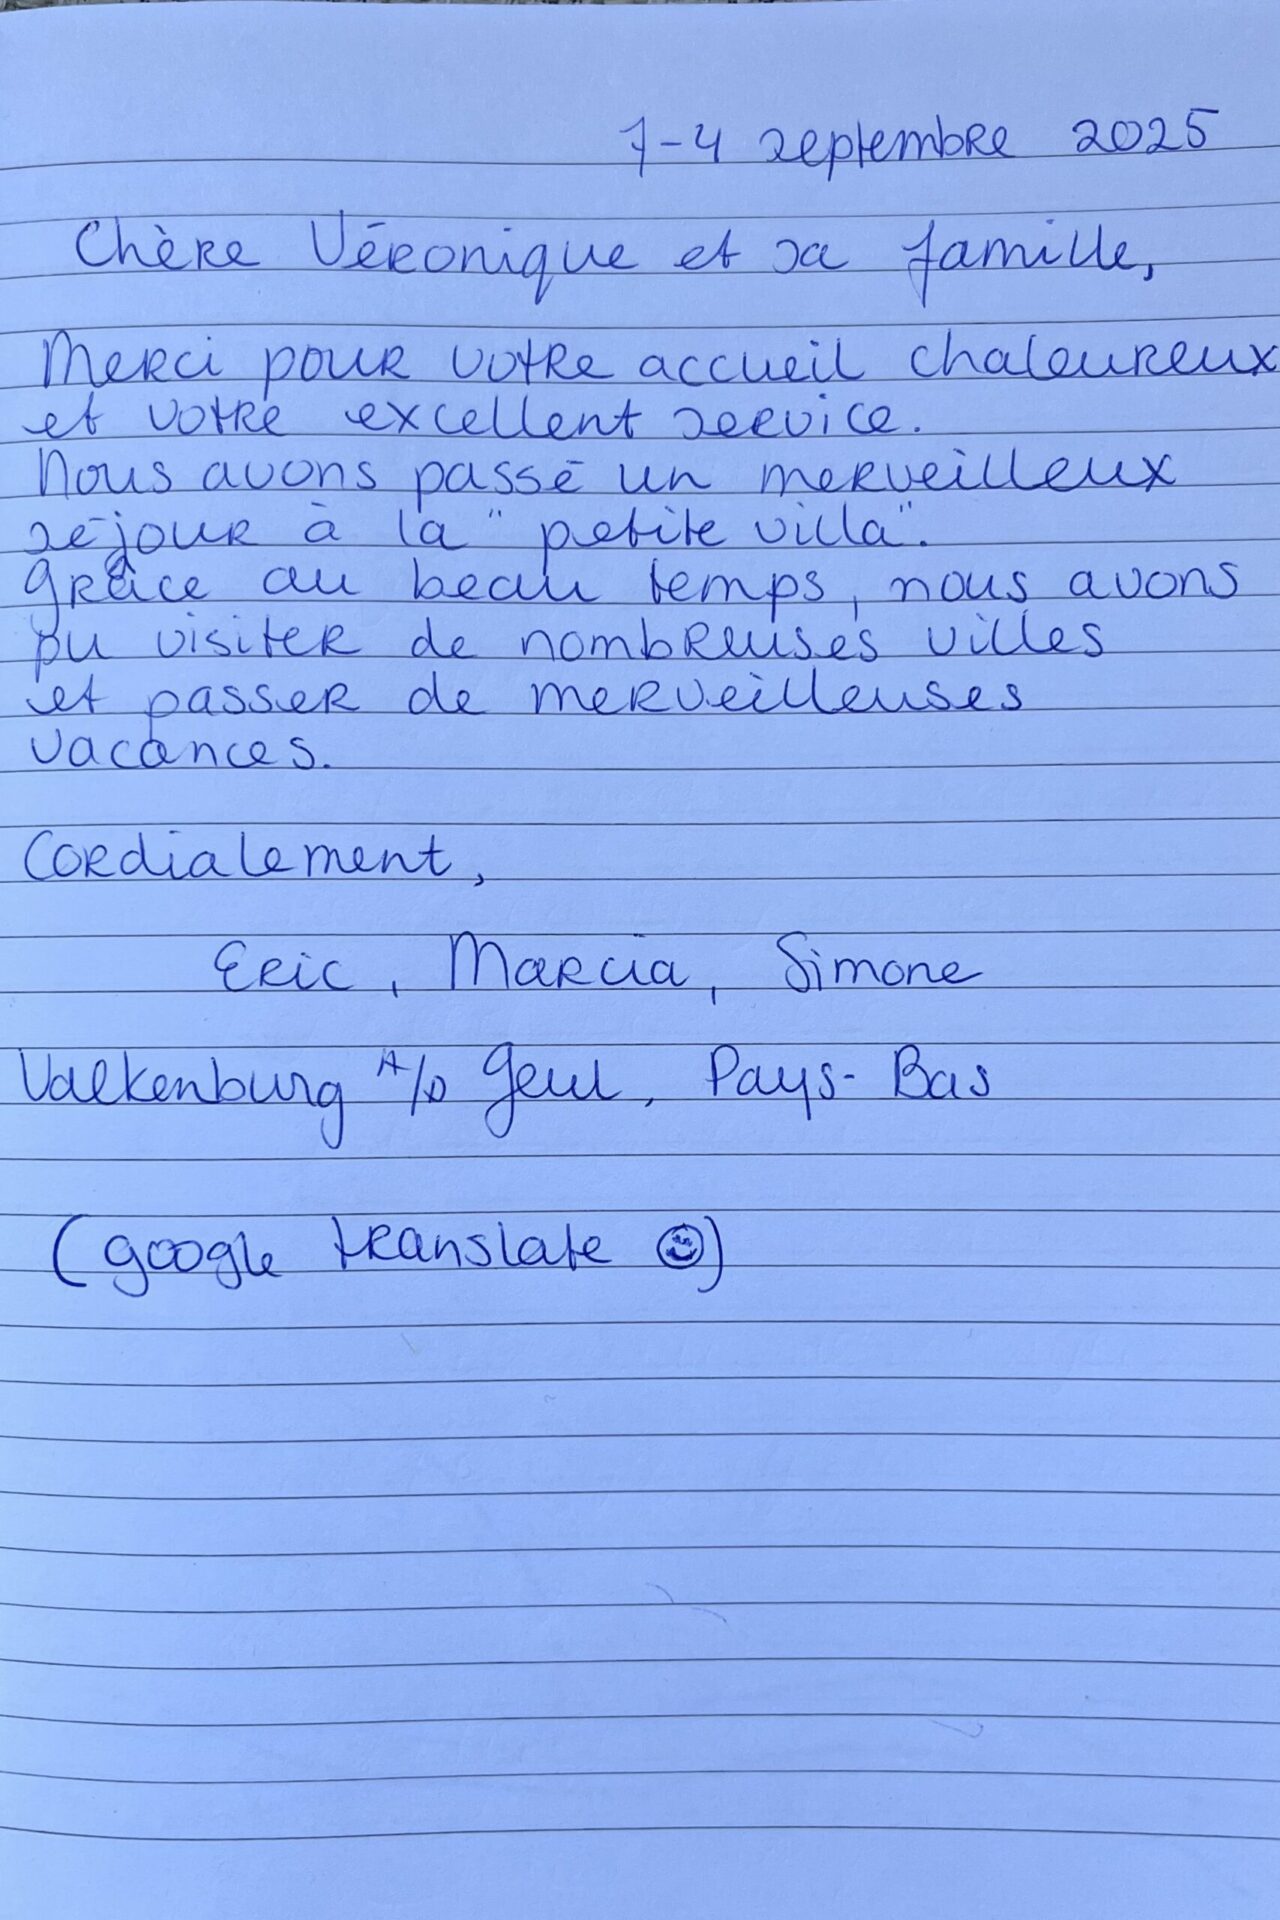 1-4 septembre 2025
Chère Véronique et sa famille,
Merci pour votre accueil chaleureux
et votre excellent service.
Nous avons passé un merveilleux
séjour à la "petite villa".
Grâce au beau temps, nous avons
pu visiter de nombreuses villes
et passer de merveilleuses
vacances.
Cordialement,
Eric, Marcia, Simone
Valkenburg A/D Geul, Pays-Bas
(google translate ☺)